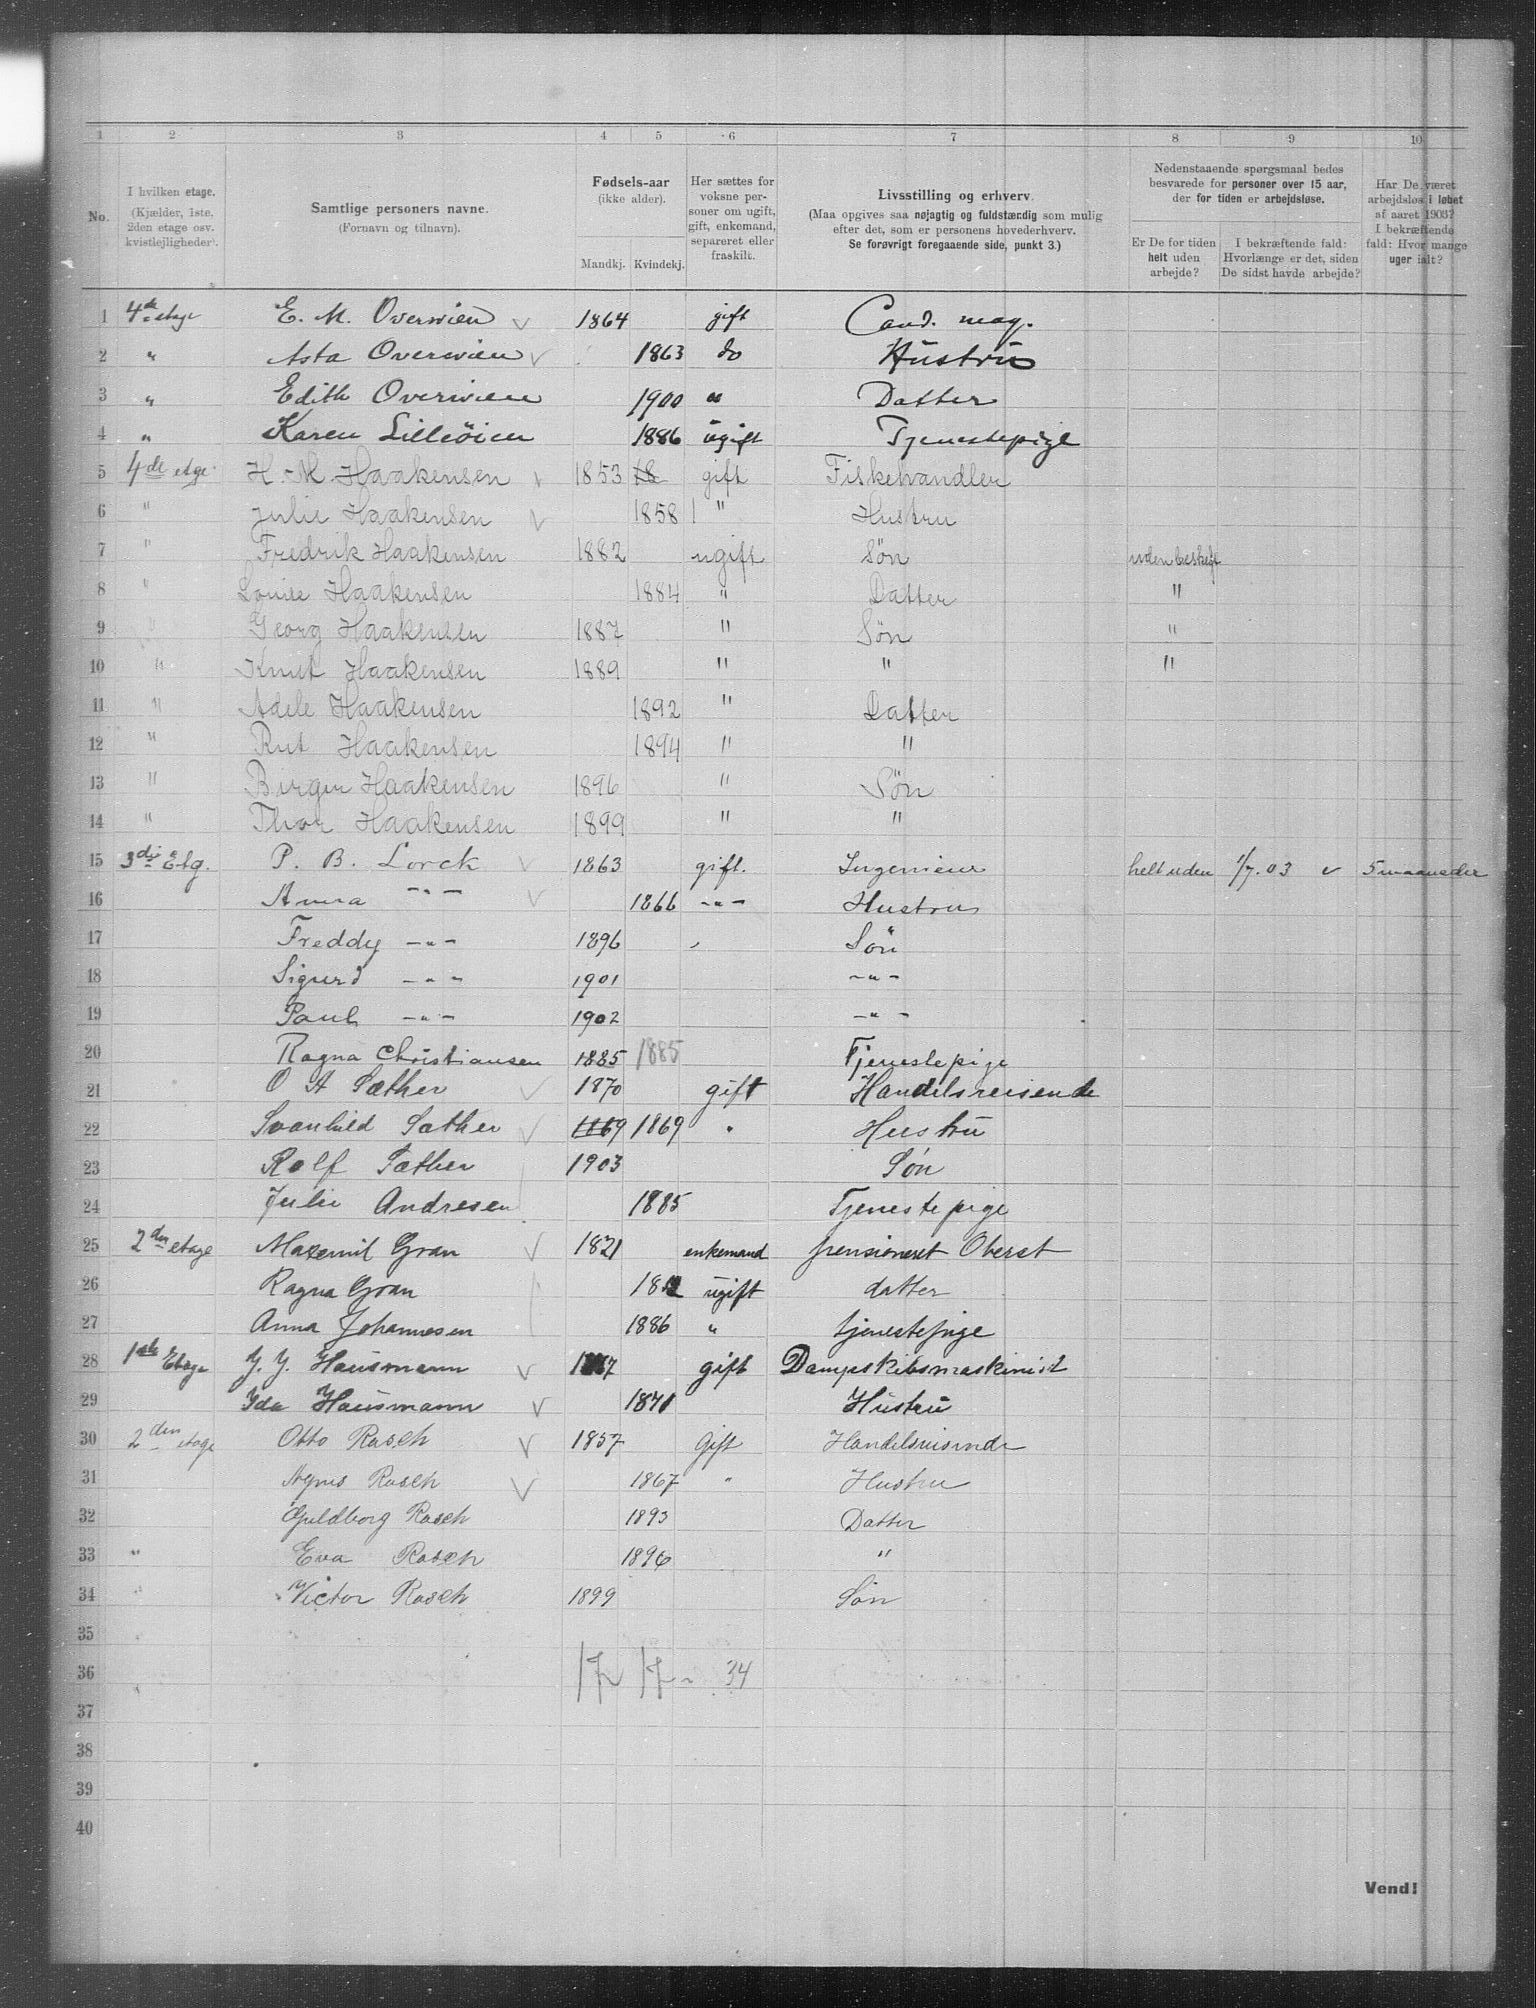 1 2 3 4 5 6 7 8 9 10
No.
I hvilken etage. (Kjælder, 1ste, 2den etage osv. kvistlejligheder).
Samtlige personers navne. (Fornavn og tilnavn).
Fødsels-aar (ikke alder). Mandkj. Kvindekj.
Her sættes for voksne personer om ugift, gift, enkemand, separeret eller fraskilt.
Livsstilling og erhverv. (Maa opgives saa nøjagtig og fuldstændig som mulig efter det, som er personens hovederhverv. Se forøvrigt foregaaende side, punkt 3.)
Nedenstaaende spørgsmaal bedes besvarede for personer over 15 aar, der for tiden er arbejdsløse.
Er De for tiden helt uden arbejde?
I bekræftende fald: Hvorlænge er det, siden De sidst havde arbejde?
Har De været arbejdsløs i løbet af aaret 1903? I bekræftende fald: Hvor mange uger ialt?
1 4de etage E. M. Overwien 1864 gift Cand. mag.
2 " Asta Overwien 1863 do Hustru
3 " Edith Overwien 1900 " Datter
4 " Karen Lilleöien 1886 ugift Tjenestepige
5 4de etge. H. M. Haakensen 1853 18 gift Fiskehandler
6 " Julie Haakensen 1858 " Hustru
7 " Fredrik Haakensen 1882 ugift Søn uden beskjft
8 " Louise Haakensen 1884 " Datter "
9 Georg Haakensen 1887 " Søn "
10 " Knut Haakensen 1889 " " "
11 " Adele Haakensen 1892 " Datter
12 " Rut Haakensen 1894 " "
13 " Birger Haakensen 1896 " Søn
14 " Thor Haakensen 1899 " "
15 3die Etg. P. B. Lorck 1863 gift. Ingenieur helt uden 1/7. 03 5 maaneder
16 Anna -"- 1866 -"- Hustru
17 Freddy -"- 1896 Søn
18 Sigurd -"- 1901 -"-
19 Paul -"- 1902 -"-
20 Ragna Christiansen 1885 1885 Tjenestepige
21 O A Sæther 1870 gift Handelsreisende
22 Svanhild Sæther 1869 1869 " Hustru
23 Rolf Sæther 1903 Søn
24 Julie Andresen 1885 Tjenestepige
25 2den etage Maxemil Gran 1821 enkemand pensioneret Oberst
26 Ragna Gran ugift datter
27 Anna Johannesen 1886 " tjenestepige
28 1ste Etage Hausmann gift Dampskibsmaskinist
29 Ida Hausmann 1871 Hustru
30 2den etage Otto Rasch 1857 Gift Handelsreisende
31 Agnes Rasch 1867 " Hustru
32 Guldborg Rasch 1893 Datter
33 " Eva Rasch 1896 "
34 " Victor Rasch 1899 Søn
35
36 17 17 - 34
37
38
39
40
Vend!